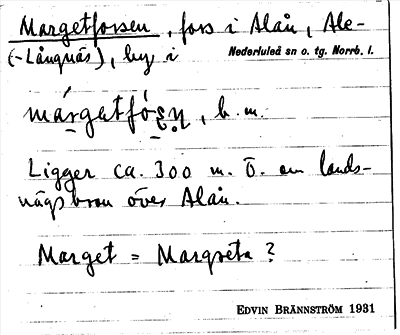 Margetforsen, fors i Alån, Ale-
(-Långnäs), by i Nederluleå sn o. tg. Norrb. l.
márgatfó̱ʂn̩, b. m.
Ligger ca. 300 m. Ö. om lands-
vägsbron över Alån.
Marget = Margreta ?
EDVIN BRÄNNSTRÖM 1931